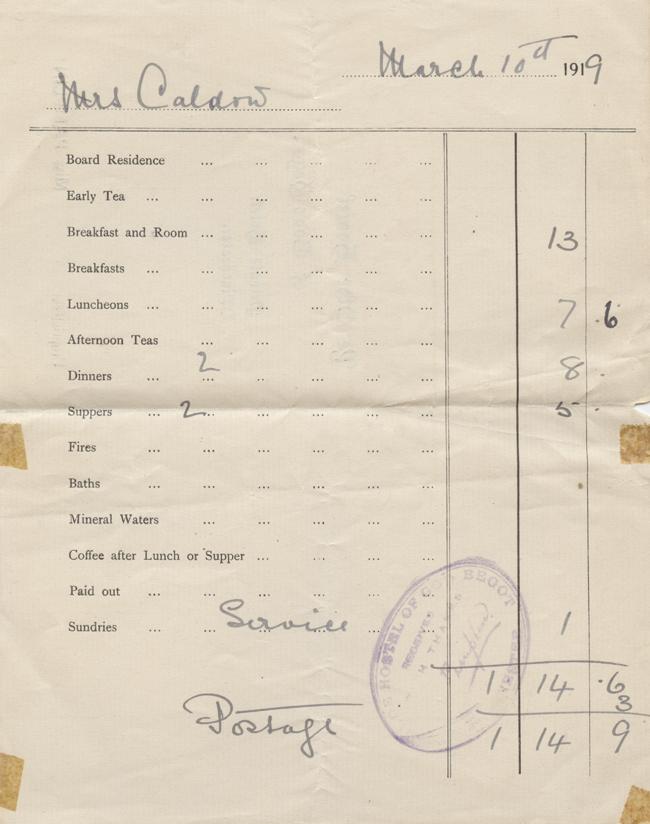 March 10th 1919
Mrs Caldow
Board Residence ... ... ... ... ...
Early Tea ... ... ... ... ... ...
Breakfast and Room ... ... ... ... ... 13
Breakfasts ... ... ... ... ... ...
Luncheons ... ... ... ... ... ... 7 .6
Afternoon Teas ... ... ... ... ...
Dinners ... 2 ... .. ... ... ... 8 .
Suppers ... 2 ... ... ... ... 5 .
Fires ... ... ... ... ... ...
Baths ... ... ... ... ... ...
Mineral Waters ... ... ... ... ...
Coffee after Lunch or Supper ... ... ... ...
Paid out ... ... ... ... ...
Sundries ... ... Service ... 1
HOSTEL OF GOD BEGOT
RECEIVED
WITH THANKS
1 14 .6
3
Postage
1 14 9